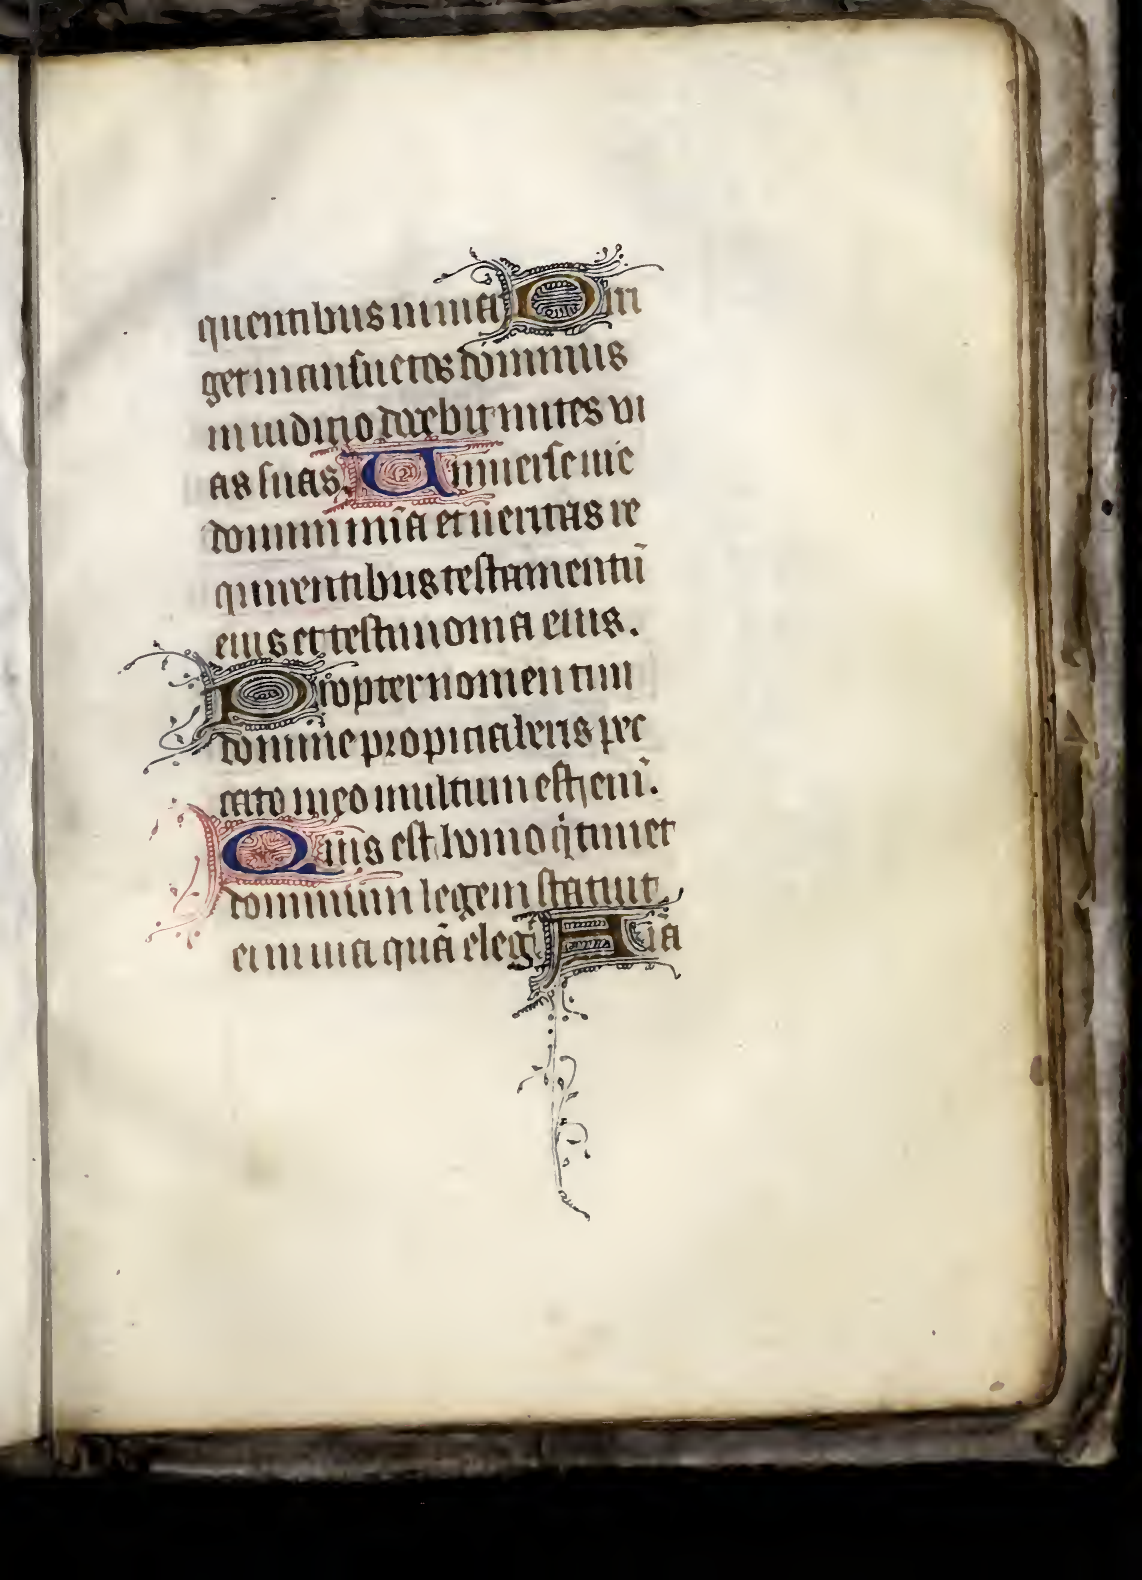 quentibus in uia Diri
get mansuetos dominus
in iudicio docebit mites vi
as suas. Uniuerse uie
domini mīa et ueritas re
quirentibus testamentū
eius et testimonia eius.
Propter nomen tuū
domine propiciaberis pec
cato meo multum est enī.
Quis est homo q̇ timet
dominum legem statuit
ei in uia quā elegit Aīa